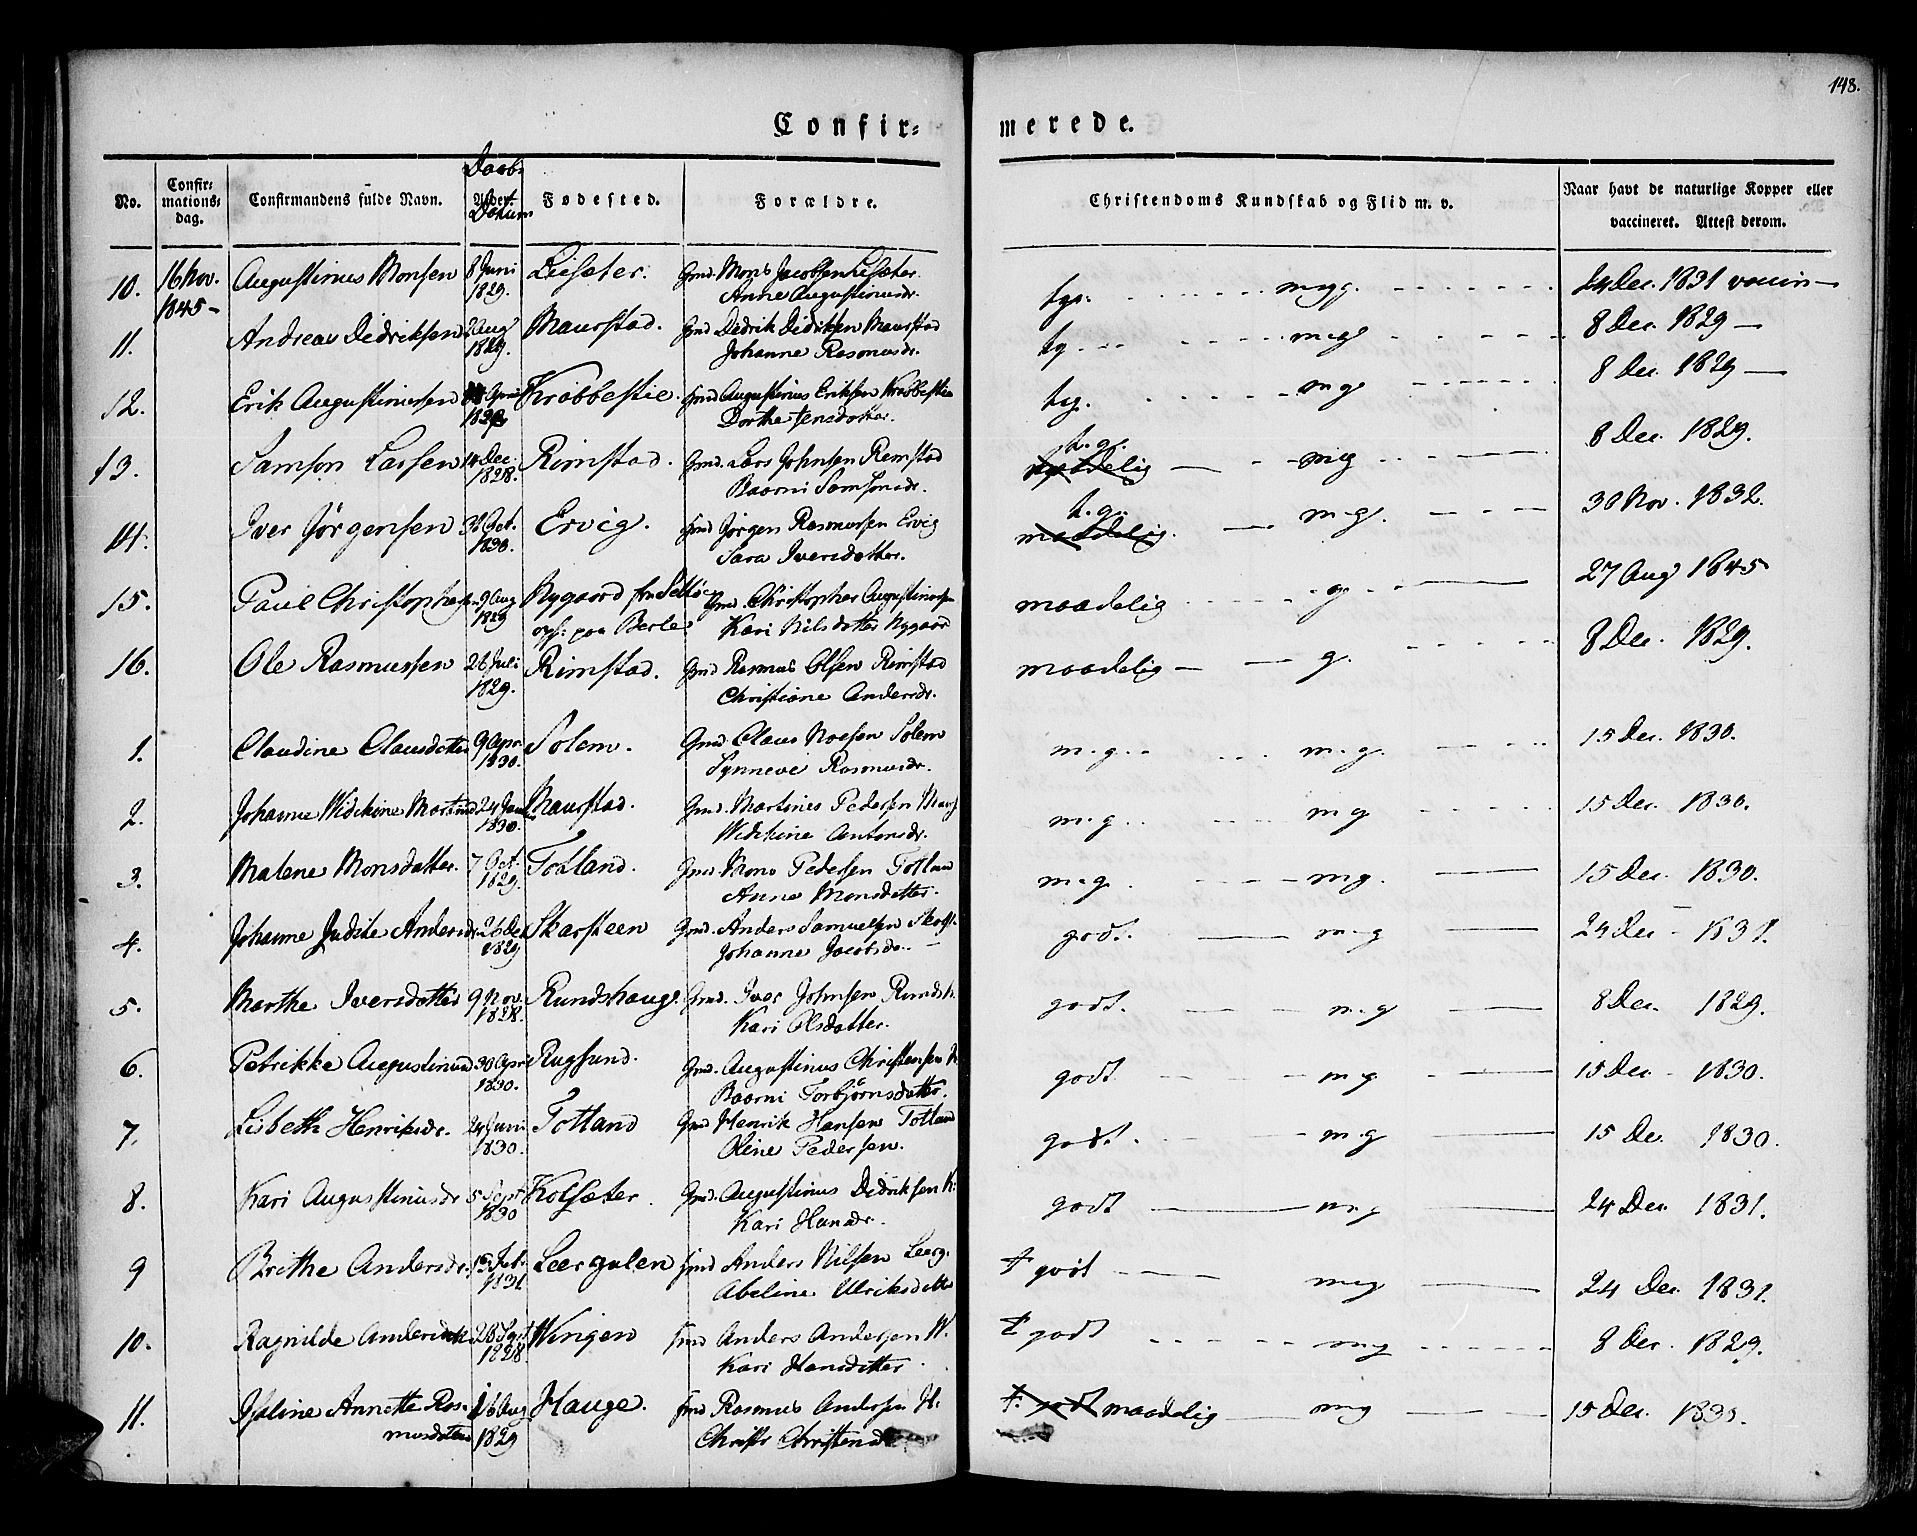 148.
Confir-
merede.
Daab-
Datum
No.
Confir-
mations-
dag.
Confirmandens fulde Navn.
Alder.
Fødested.
Forældre.
Christendoms Kundskab og Flid m. v.
Naar havt de naturlige Kopper eller
vaccineret. Attest derom.
10. 16 Nov. Augustinus Monsen 8 Juni Liesæter. Gmd. Mons Jacobsen Lisæter.
1845 1829. Anne Augustinusdr.
tgr. mgg. 24 Dec. 1831 vaccin
11. Andreas Didriksen 2 Aug Maurstad. Gmd Didrik Didriksen Maurstad
1829. Johanne Rasmusdr.
tg. mg 8 Dec. 1829
12. Erik Augustinussen April Krabbestie. Gmd Augustinus Eriksen Krabbestie
Dorthe Jensdatter.
tg. mg 8 Dec. 1829
13. Samson Larsen 14 Dec. Rimstad. Gmd. Lars Johnsen Remstad
1828. Baarni Samsonsdr.
t.g.
maadelig mg 8 Dec. 1829.
14. Iver Jørgensen Oct. Ervig. Gmd Jørgen Rasmussen Ervig
1830. Sara Iversdatter.
t.g.
maadelig. m.g. 30 Nov. 1832.
15. Paul Christophersen 9 Aug Nygaard Gmd. Christopher Augustinusen
1829 paa Berle Kari Nilsdatter Nygaar
maadelig g. 27 Aug 1845
16. Ole Rasmussen 26 Juli Rimstad. Gmd Rasmus Olsen Rimstad
1829. Christiane Andersdr.
maadelig g. 8 Dec. 1829.
1. Claudine Clausdatter 9 Apr. Solem. Gmd Claus Noesen Solem
1830. Synneve Rasmusdr.
m.g. m.g. 15 Dec. 1830.
2. Johanne Widikine 24 Jan Maurstad. Gmd. Martinus Pedersen
1830. Widikine Antonsdr.
m.g. m g 15 Dec. 1830.
3. Malene Monsdatter. 7 Oct. Totland. Gmd Mons Pedersen Totland
1829. Anne Monsdatter.
m.g. mg. 15 Dec. 1830.
4. Johanne Judite Andersdr. 26 Dec Skarsteen Gmd. Anders Samuelsen
1829 Johanne Jacobsdr.
godt. m.g 24 Dec 1831.
5. Marthe Iversdatter 9 Nov. Rundshaug. Gmd. Iver Johnsen Rundsh.
1828. Kari Olsdatter.
godt. m.g 8 Dec. 1829.
6. Petrikke Augustinusd 30 Apr Rugsund. Gmd. Augustinus Christensen R
1830. Baarni Torbjørnsdatter.
godt m g 15 Dec 1830.
7. Lisbeth Henriksdr. 24 Juni Totland Gmd Henrik Hansen Totland
1830. Oline Pedersen.
godt. m.g 15 De. 1830.
8. Kari Augustinusdr 5 Sept Kolsæter. Gmd. Augustinus Didriksen K.
1830 Kari Hansdr.
godt mg 24 Dec. 1831.
9 Brithe Andersdr. Feb. Leergulen Gmd Anders Nilsen Leerg.
1831 Abeline Ulriksdatte
godt mg 24 Dec. 1831.
10. Ragnilde Andersdatt 28 Sept Wingen Gmd Anders Andersen W.
1828. Kari Hansdatter
godt mg 8 Dec. 1829.
11. Annette Ras- 16 Aug Hauge. Gmd Rasmus Andersen H.
musdatter 1829 Christi Christensdr
godt maadelig mg 15 Dec.